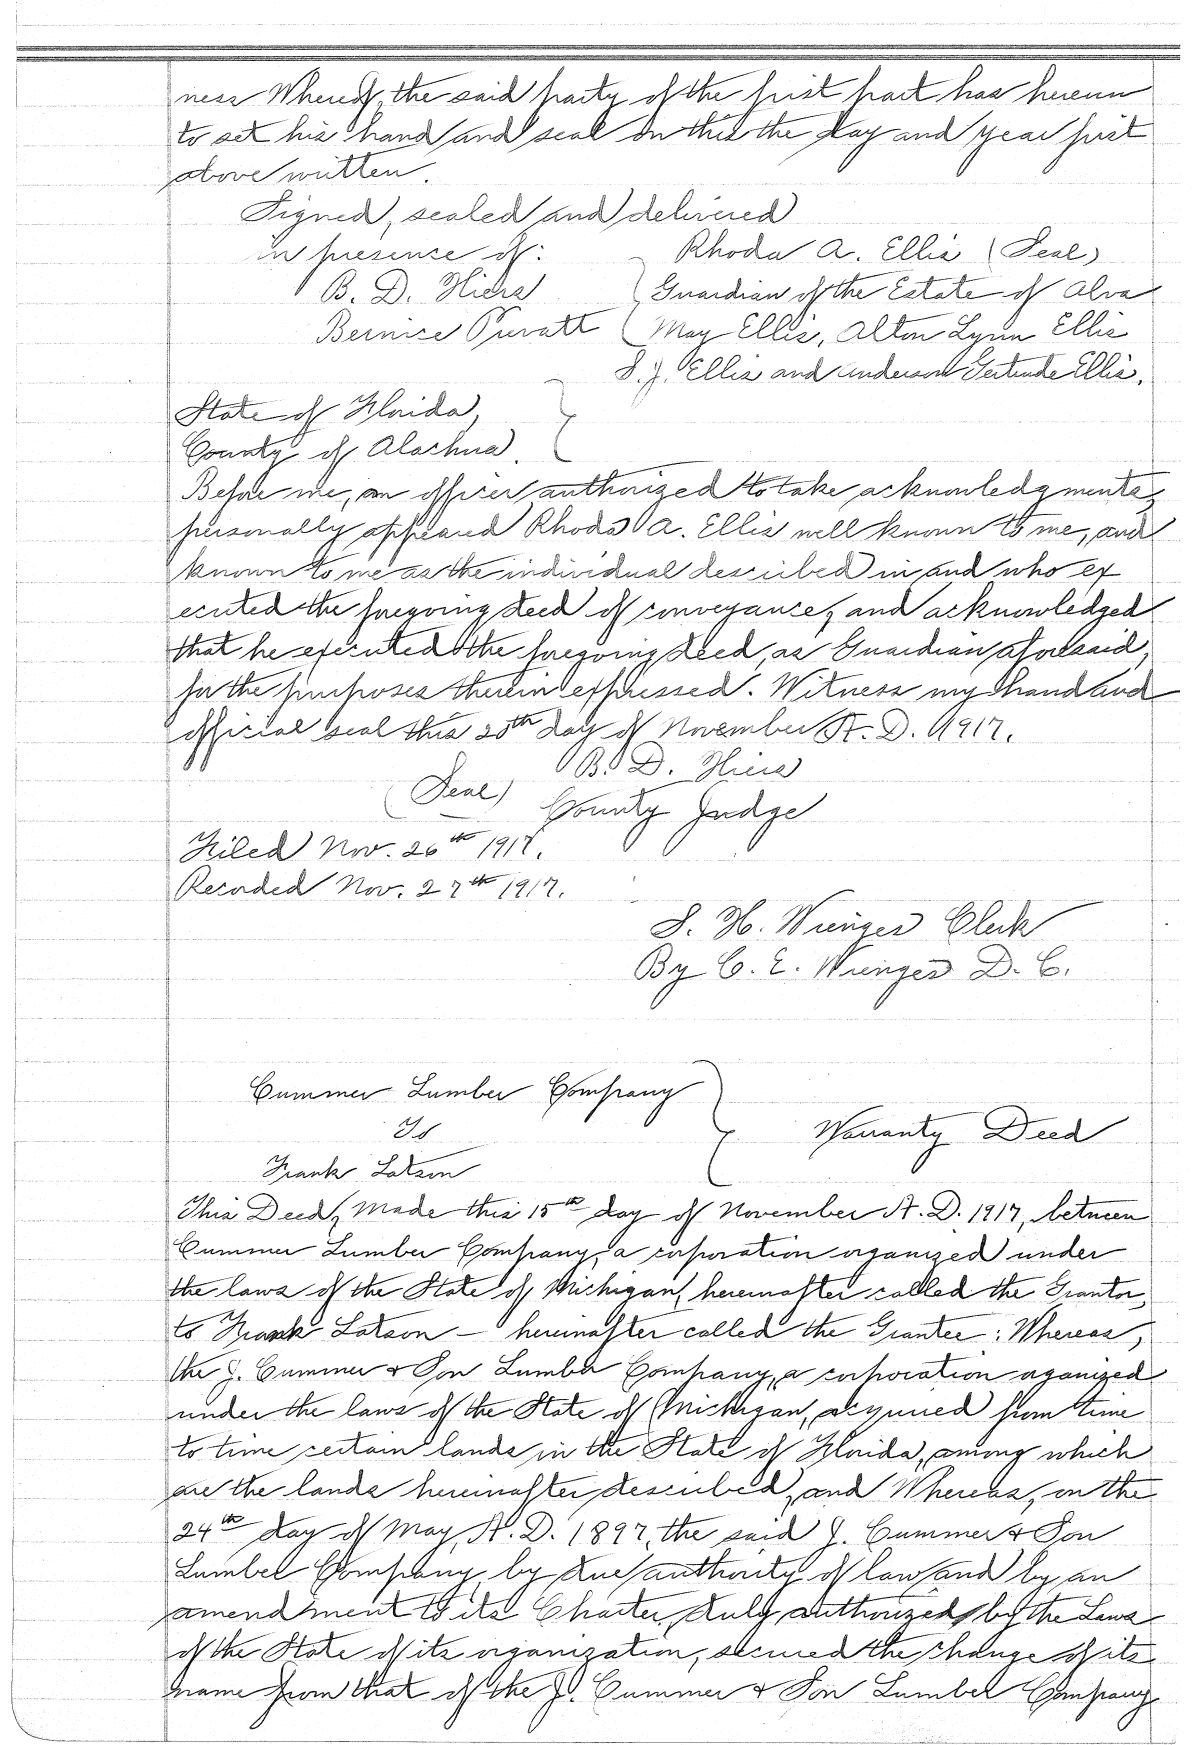 ness Whereof, the said party of the first part has hereun
to set his hand and seal on this the day and year first
above written.
Signed, sealed and delivered
in presence of: Rhoda A. Ellis (Seal)
B. D. Hiers Guardian of the Estate of Alva
Bernice Pevatt May Ellis, Alton Lynn Ellis
S. J. Ellis and Anderson Gertrude Ellis.
State of Florida,
County of Alachua.
Before me, an officer authorized to take acknowledgments,
personally appeared Rhoda A. Ellis well known to me, and
known to me as the individual described in and who ex
ecuted the foregoing deed of conveyance, and acknowledged
that he executed the foregoing deed, as Guardian aforesaid,
for the purposes therein expressed. Witness my hand and
official seal this 20th day of November A. D. 1917.
B. D. Hiers
(Seal) County Judge
Filed Nov. 26th 1917.
Recorded Nov. 27th 1917.
S. H. Wienges Clerk
By C. E. Wienges D. C.
Cummer Lumber Company
To Warranty Deed
Frank Latson
This Deed, Made this 15th day of November A. D. 1917, between
Cummer Lumber Company, a corporation organized under
the laws of the State of Michigan, hereinafter called the Grantor,
to Frank Latson - hereinafter called the Grantee: Whereas,
the J. Cummer & Son Lumber Company, a corporation organized
under the laws of the State of Michigan, acquired from time
to time certain lands in the State of Florida, among which
are the lands hereinafter described, and Whereas, on the
24th day of May, A. D. 1897, the said J. Cummer & Son
Lumber Company, by due authority of law and by an
amendment to its Charter, duly authorized by the Laws
of the State of its organization, secured the change of its
name from that of the J. Cummer & Son Lumber Company